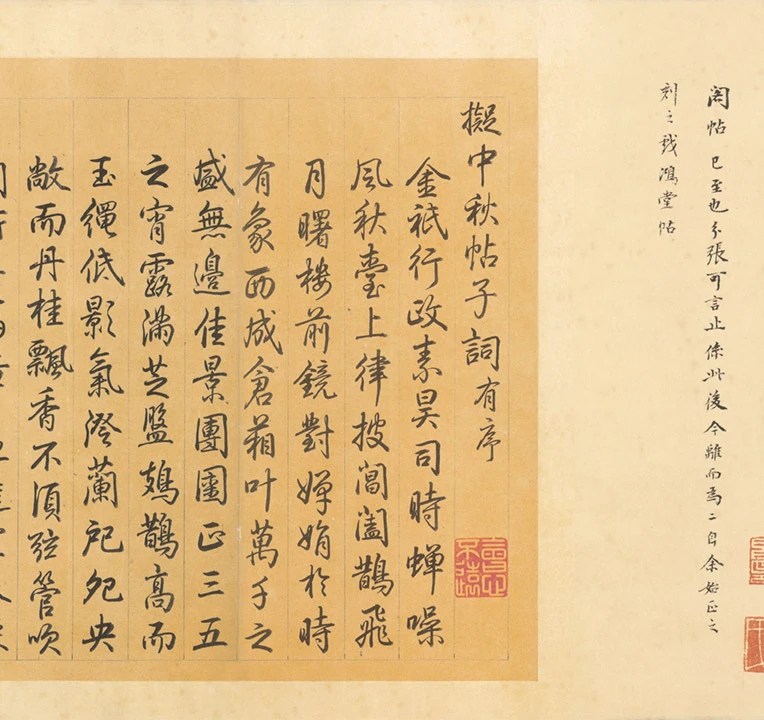 閣帖已至也分張可言止係此後今離而為二自余始正之
刻之戲鴻堂帖
擬中秋帖子詞有序
金祇行政素昊司時蟬噪
風秋臺上律披閶闔鵲飛
月曙樓前鏡對嬋娟於時
有象西成倉葙叶萬千之
盛無邊佳景團圞正三五
之宵露滿芝盤鳷鵲高而
玉繩低影氣澄蘭戺夗央
敞而丹桂飄香不須弦管吹
會心不遠